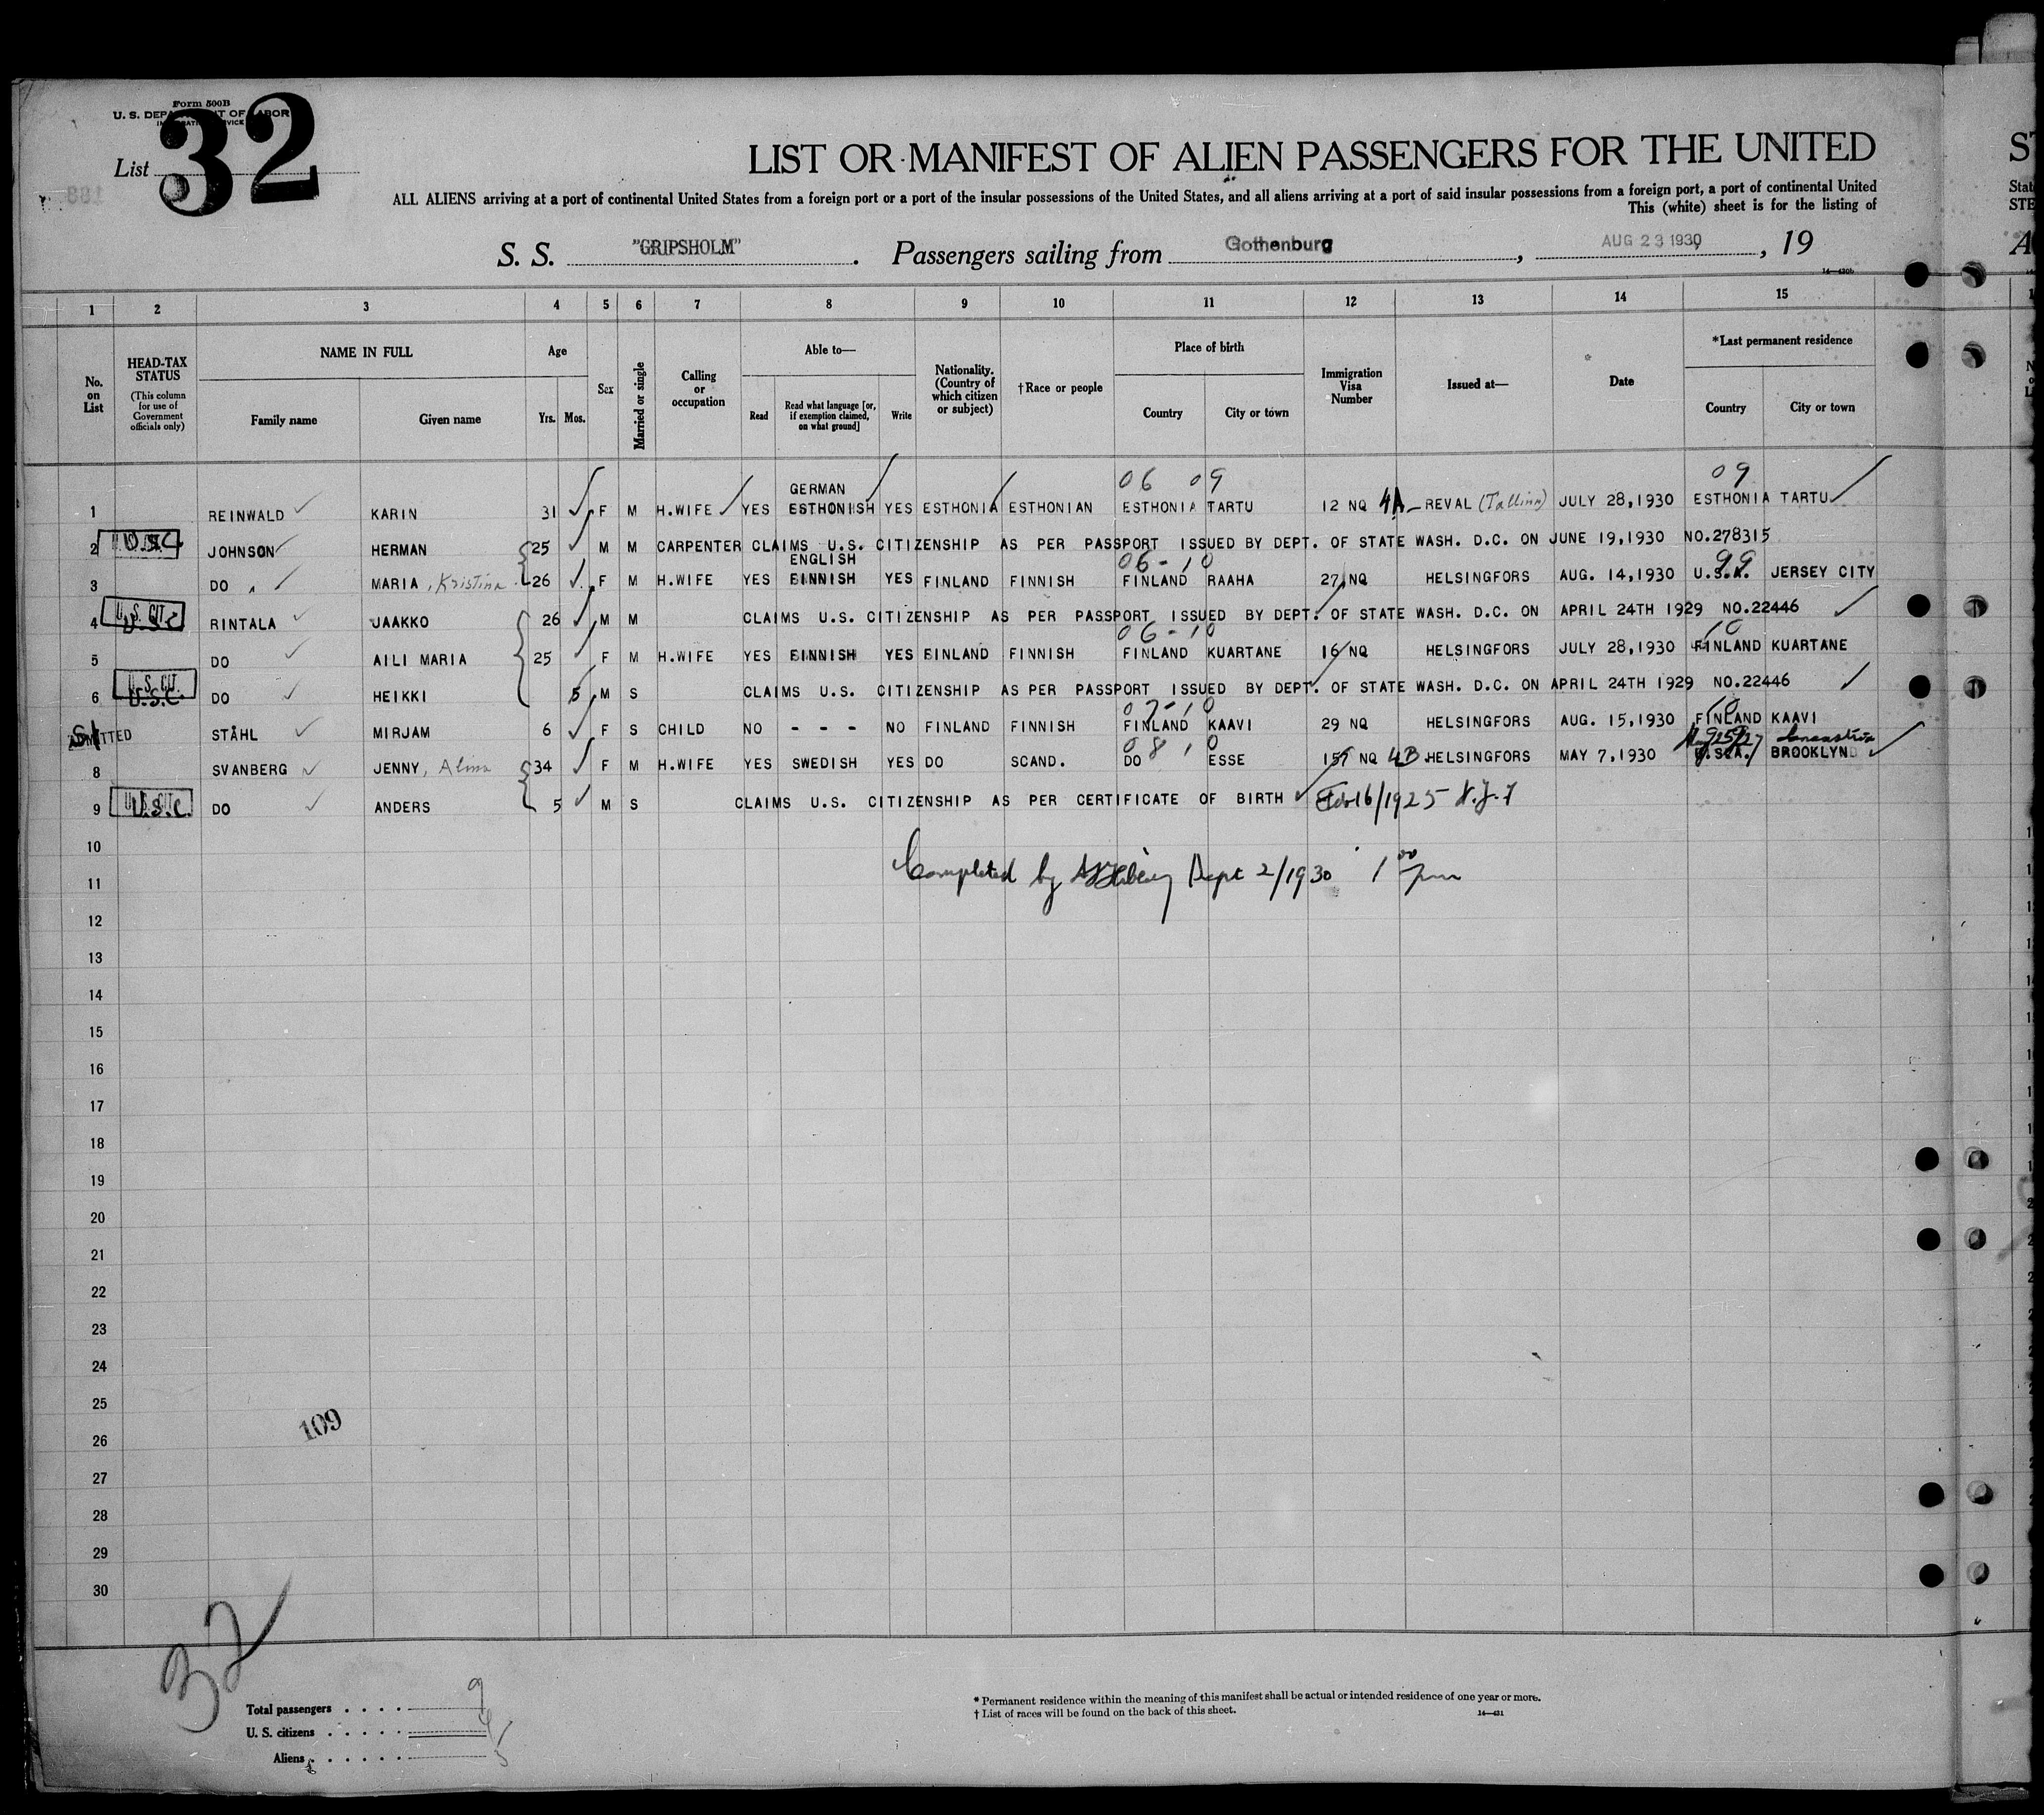 Form 500B
U. S. DEPARTMENT OF LABOR
IMMIGRATION SERVICE
List 32
LIST OR MANIFEST OF ALIEN PASSENGERS FOR THE UNITED
ALL ALIENS arriving at a port of continental United States from a foreign port or a port of the insular possessions of the United States, and all aliens arriving at a port of said insular possessions from a foreign port, a port of continental United
This (white) sheet is for the listing of
S. S. "GRIPSHOLM". Passengers sailing from Gothenburg, AUG 23 1930, 19
14—430b
1 2 3 4 5 6 7 8 9 10 11 12 13 14 15
No. on List
HEAD-TAX STATUS (This column for use of Government officials only)
NAME IN FULL Family name Given name
Age Yrs. Mos.
Sex
Married or single
Calling or occupation
Able to— Read Read what language [or, if exemption claimed, on what ground] Write
Nationality. (Country of which citizen or subject)
†Race or people
Place of birth Country City or town
Immigration Visa Number
Issued at—
Date
*Last permanent residence Country City or town
06 09 09
GERMAN
1 REINWALD KARIN 31 F M H.WIFE YES ESTHONISH YES ESTHONIA ESTHONIAN ESTHONIA TARTU 12 NQ 4A REVAL (Tallinn) JULY 28,1930 ESTHONIA TARTU
2 U.S.C. JOHNSON HERMAN 25 M M CARPENTER CLAIMS U.S. CITIZENSHIP AS PER PASSPORT ISSUED BY DEPT. OF STATE WASH. D.C. ON JUNE 19,1930 NO.278315
ENGLISH 06-10 99
3 DO MARIA, Kristina 26 F M H.WIFE YES FINNISH YES FINLAND FINNISH FINLAND RAAHA 27 NQ HELSINGFORS AUG. 14,1930 U.S.A. JERSEY CITY
4 U.S. CIT. U.S.C RINTALA JAAKKO 26 M M CLAIMS U.S. CITIZENSHIP AS PER PASSPORT ISSUED BY DEPT. OF STATE WASH. D.C. ON APRIL 24TH 1929 NO.22446
06-10 10
5 DO AILI MARIA 25 F M H.WIFE YES FINNISH YES FINLAND FINNISH FINLAND KUARTANE 16 NQ HELSINGFORS JULY 28,1930 FINLAND KUARTANE
6 U.S. CIT. U.S.C. DO HEIKKI 5 M S CLAIMS U.S. CITIZENSHIP AS PER PASSPORT ISSUED BY DEPT. OF STATE WASH. D.C. ON APRIL 24TH 1929 NO.22446
07-10 10
SI ADMITTED STÅHL MIRJAM 6 F S CHILD NO - - - NO FINLAND FINNISH FINLAND KAAVI 29 NQ HELSINGFORS AUG. 15,1930 FINLAND KAAVI
08 10
8 SVANBERG JENNY, Alina 34 F M H.WIFE YES SWEDISH YES DO SCAND. DO ESSE 157 NQ 4B HELSINGFORS MAY 7,1930 U.S.A. BROOKLYN
9 U.S. CIT. U.S.C. DO ANDERS 5 M S CLAIMS U.S. CITIZENSHIP AS PER CERTIFICATE OF BIRTH Feb 16/1925
10
Completed by Sept 2/1930 1 00 pm
11
12
13
14
15
16
17
18
19
20
21
22
23
24
25
109
26
27
28
29
30
32
Total passengers . . . . 9
U. S. citizens . . . . . 4
Aliens . . . . . . 5
* Permanent residence within the meaning of this manifest shall be actual or intended residence of one year or more.
† List of races will be found on the back of this sheet.
14—431